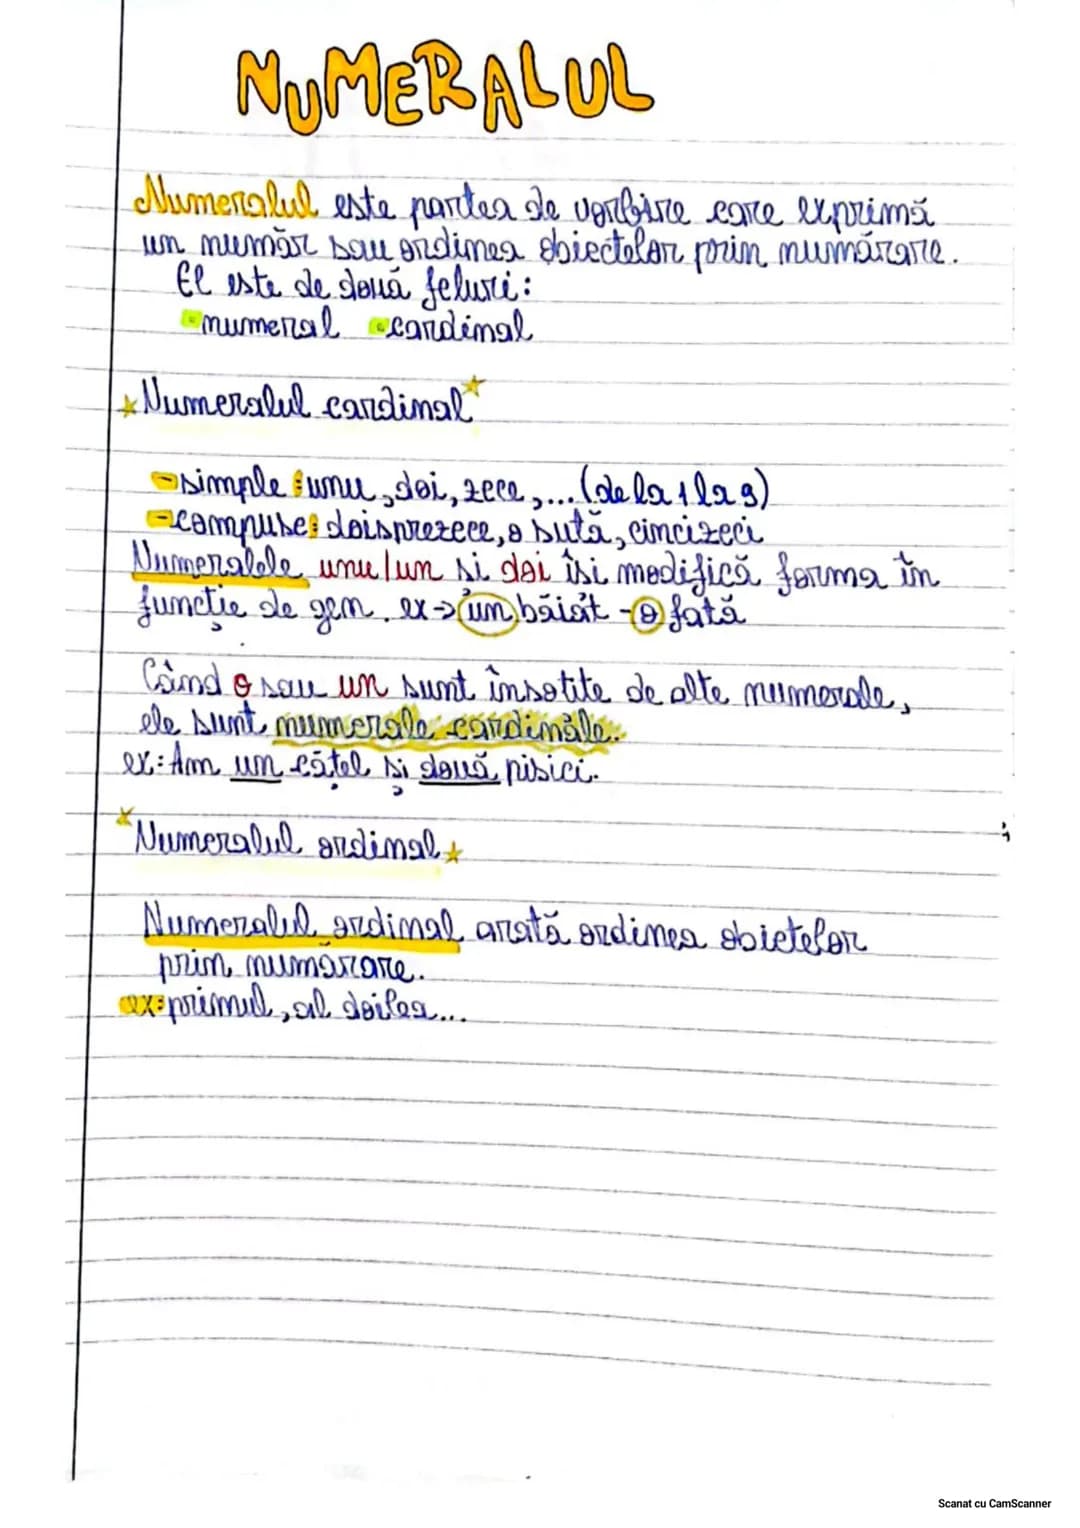 NUMERALUL
Numeralul este partea de vorbire care exprimă
un număr sau ordinea obiectelor prin numărare.
El este de două feluri:
numeral cardinal
Numeralul cardinal
-simple: unu, doi, zece,... (de la 1 la 9)
-compuse: doisprezece, o sută, cincizeci
Numeralele unu/un si doi îsi modifică forma în
funcție de gen. ex-> un băiat - o fată
Când o sau un sunt însotite de alte numerale,
ele sunt numerale cardinale.
ex: Am un cățel și două pisici.
Numeralul ordinal
Numeralul ordinal arată ordinea obietelor
prin numărare.
ex: primul, al doilea...
Scanat cu CamScanner